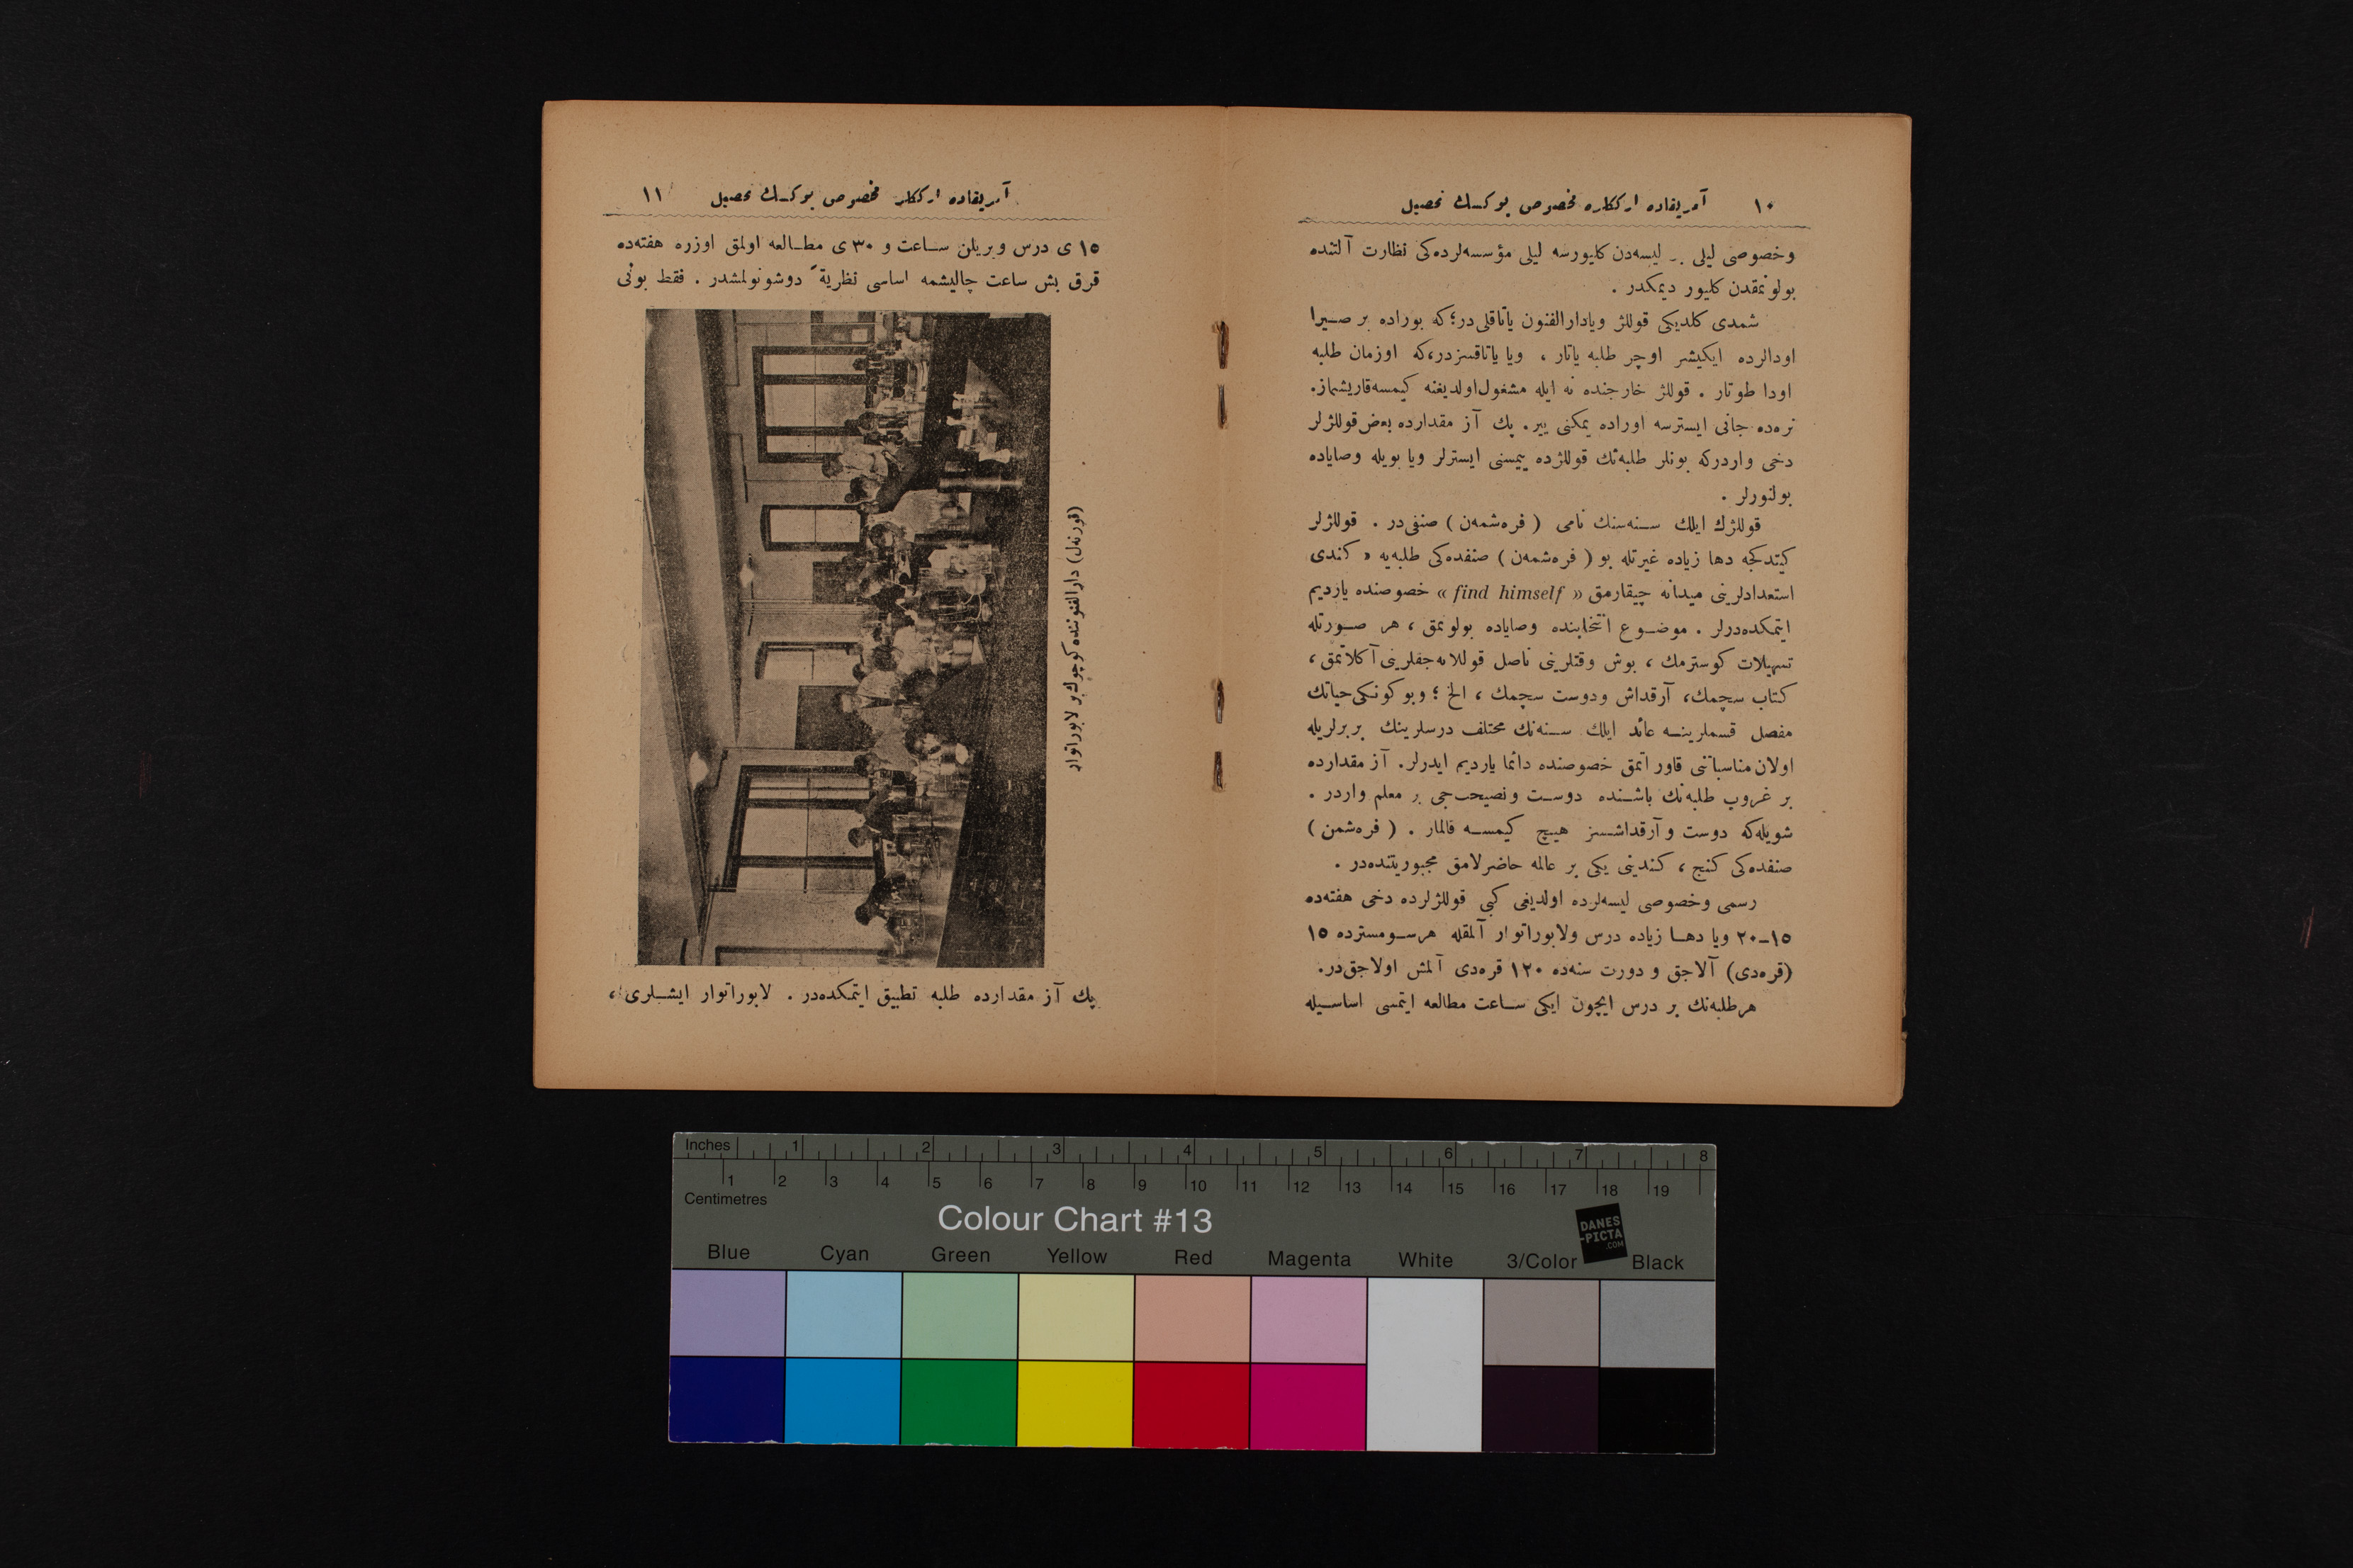 ١٠ آمریقاده ارككلره مخصوص یوكسك تحصیل
وخصوصی لیلی بر لیسه‌دن كلیورسه لیلی مؤسسه‌لرده‌كی نظارت آلتنده
بولونمقدن كلیور دیمكدر .
شمدی كلدیكی قوللژ ویادارالفنون یاتاقلی در؛ كه بوراده بر صیرا
اودالرده ایكیشر اوچر طلبه یاتار ، ویا یاتاقسزدر،كه اوزمان طلبه
اودا طوتار . قوللژ خارجنده نه ایله مشغول اولدیغنه كیمسه قاریشماز.
نره‌ده جانی ایسترسه اوراده یمكنی ییر. پك آز مقدارده بعض قوللژلر
دخی واردركه بونلر طلبه‌نك قوللژده ییمسنی ایسترلر ویا بویله وصایاده
بولنورلر .
قوللژك ایلك سنه‌سنك نامی ( فره‌شمه‌ن ) صنفی در . قوللژلر
كیتدكجه دها زیاده غیرتله بو ( فره‌شمه‌ن ) صنفده‌كی طلبه‌یه « كندی
استعدادلرینی میدانه چیقارمق « find himself » خصوصنده یاردیم
ایتمكده‌درلر . موضوع انتخابنده وصایاده بولونمق ، هر صورتله
تسهیلات كوسترمك ، بوش وقتلرینی ناصل قوللانه‌جقلرینی آكلاتمق ،
كتاب سچمك، آرقداش ودوست سچمك ، الخ ؛ وبو كونكی حیاتك
مفصل قسملرینه عائد ایلك سنه‌نك مختلف درسلرینك بربرلریله
اولان مناسباتنی قاوراتمق خصوصنده دائما یاردیم ایدرلر. آز مقدارده
بر غروپ طلبه‌نك باشنده دوست ونصیحت‌جی بر معلم واردر .
شویله‌كه دوست و آرقداشسز هیچ كیمسه قالماز . ( فره‌شمن )
صنفده‌كی كنج ، كندینی یكی بر عالمه حاضرلامق مجبوریتنده‌در .
رسمی وخصوصی لیسه‌لرده اولدیغی كبی قوللژلرده دخی هفته‌ده
١٥-٢٠ ویا دها زیاده درس ولابوراتوار آلمقله هرسومسترده ١٥
(قره‌دی) آلاجق و دورت سنه‌ده ١٢٠ قره‌دی آلمش اولاجق‌در.
هرطلبه‌نك بر درس ایچون ایكی ساعت مطالعه ایتمسی اساسیله
آمریقاده ارككلره مخصوص یوكسك تحصیل ١١
١٥ ی درس ویریلن ساعت و ٣٠ ی مطالعه اولمق اوزره هفته‌ده
قرق بش ساعت چالیشمه اساسی نظریةً دوشونولمشدر . فقط بونی
(قورنه‌ل) دارالفنوننده كوچوك بر لابوراتوار
پك آز مقدارده طلبه تطبیق ایتمكده‌در . لابوراتوار ایشلری ،
Inches 1 2 3 4 5 6 7 8
1 2 3 4 5 6 7 8 9 10 11 12 13 14 15 16 17 18 19
Centimetres
Colour Chart #13
DANES
-PICTA
.COM
Blue Cyan Green Yellow Red Magenta White 3/Color Black